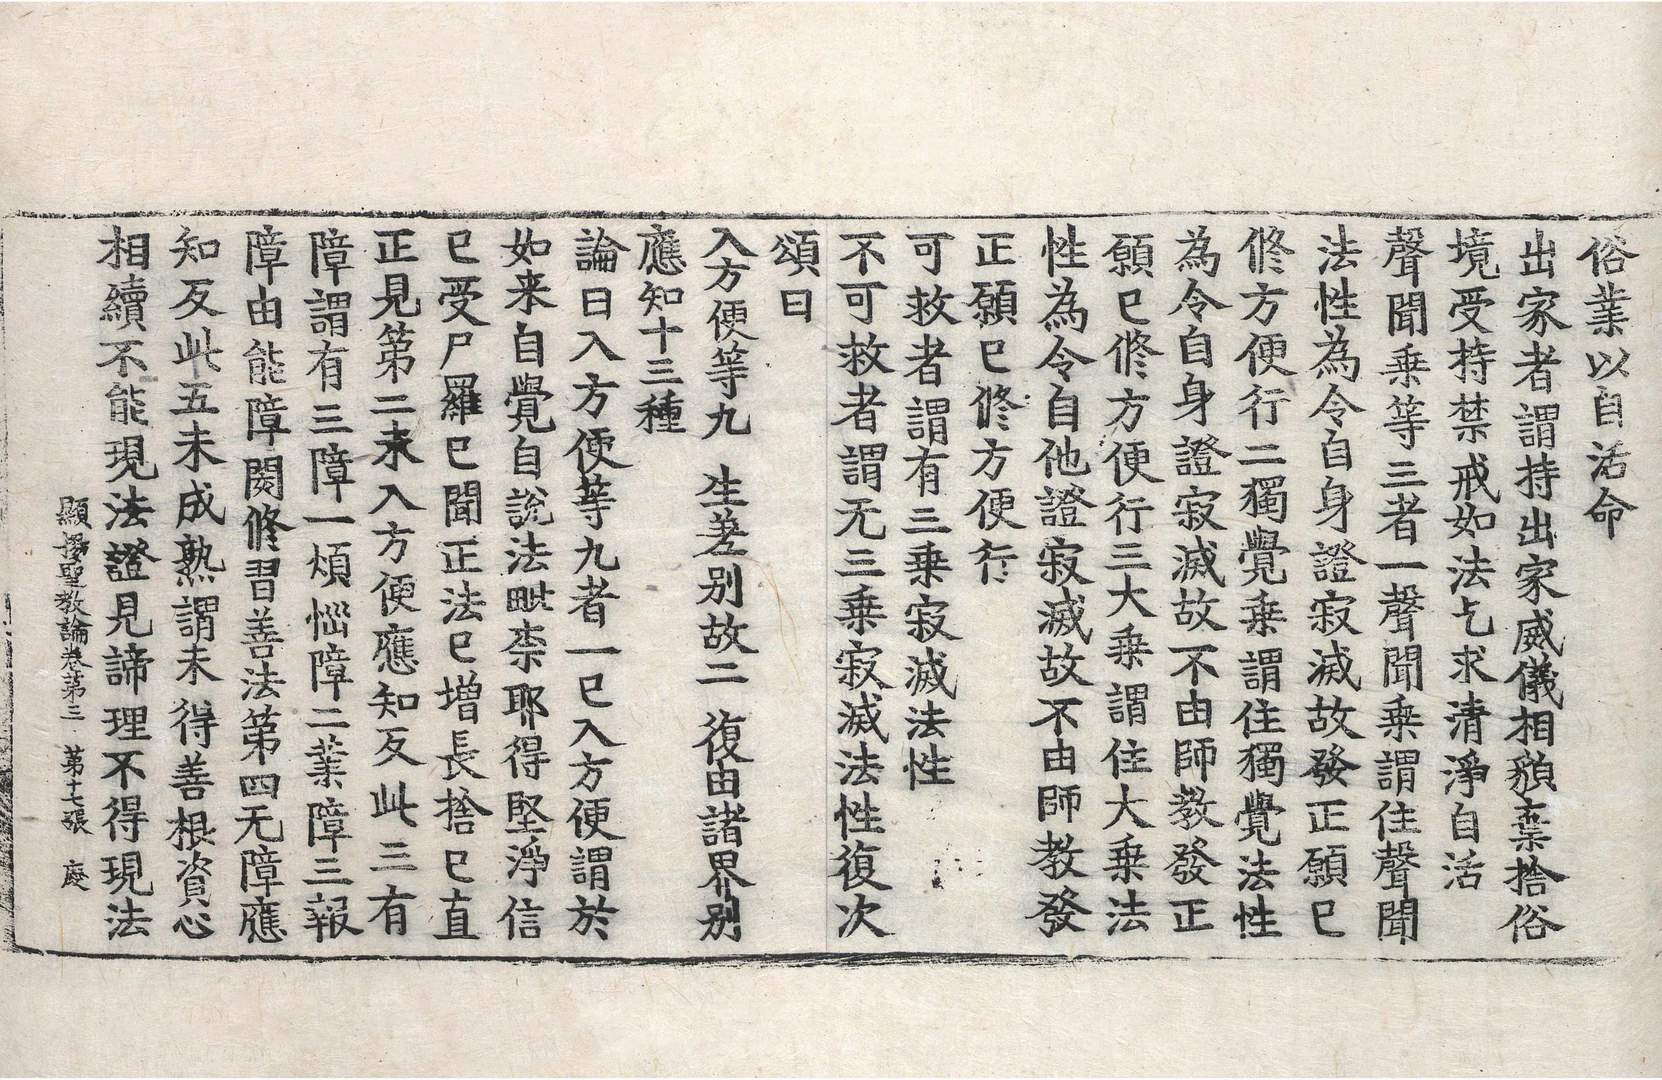 俗業以自活命
出家者謂持出家威儀相䫉棄捨俗
境受持禁戒如法乞求清淨自活
聲聞乗等三者一聲聞乗謂住聲聞
法性為令自身證寂滅故發正願已
修方便行二獨覺乗謂住獨覺法性
為令自身證寂滅故不由師教發正
願已修方便行三大乗謂住大乗法
性為令自他證寂滅故不由師教發
正願已修方便行
可救者謂有三乗寂滅法性
不可救者謂无三乗寂滅法性復次
頌曰
入方便等九 生差别故二 復由諸界别
應知十三種
論曰入方便等九者一已入方便謂於
如来自覺自說法毗柰耶得堅淨信
已受尸羅已聞正法已增長捨已直
正見第二未入方便應知反此三有
障謂有三障一煩惱障二業障三報
障由能障閡修習善法第四无障應
知反此五未成熟謂未得善根資心
相續不能現法證見諦理不得現法
顯揚聖教論卷第三 第十七張 慶